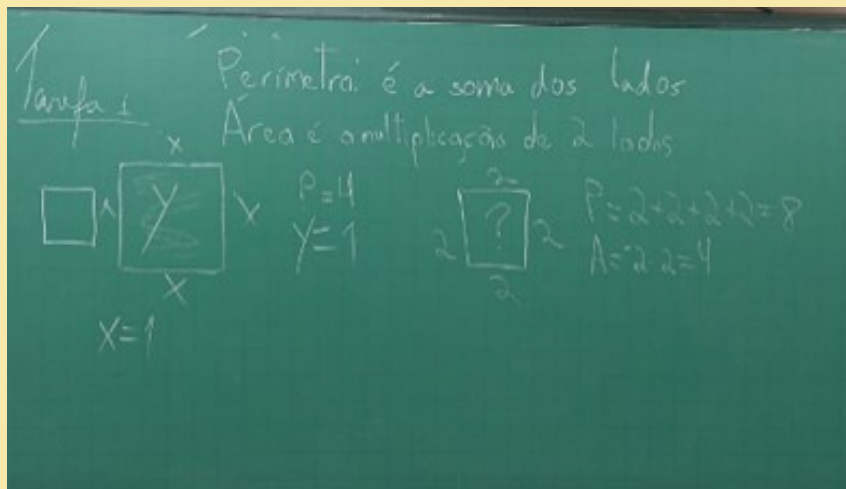 Tarefa 1
Perímetro: é a soma dos lados
Área é a multiplicação de 2 lados
x
x
y
x
x
P=4
Y=1
X=1
2
2
?
2
2
P=2+2+2+2=8
A=2·2=4